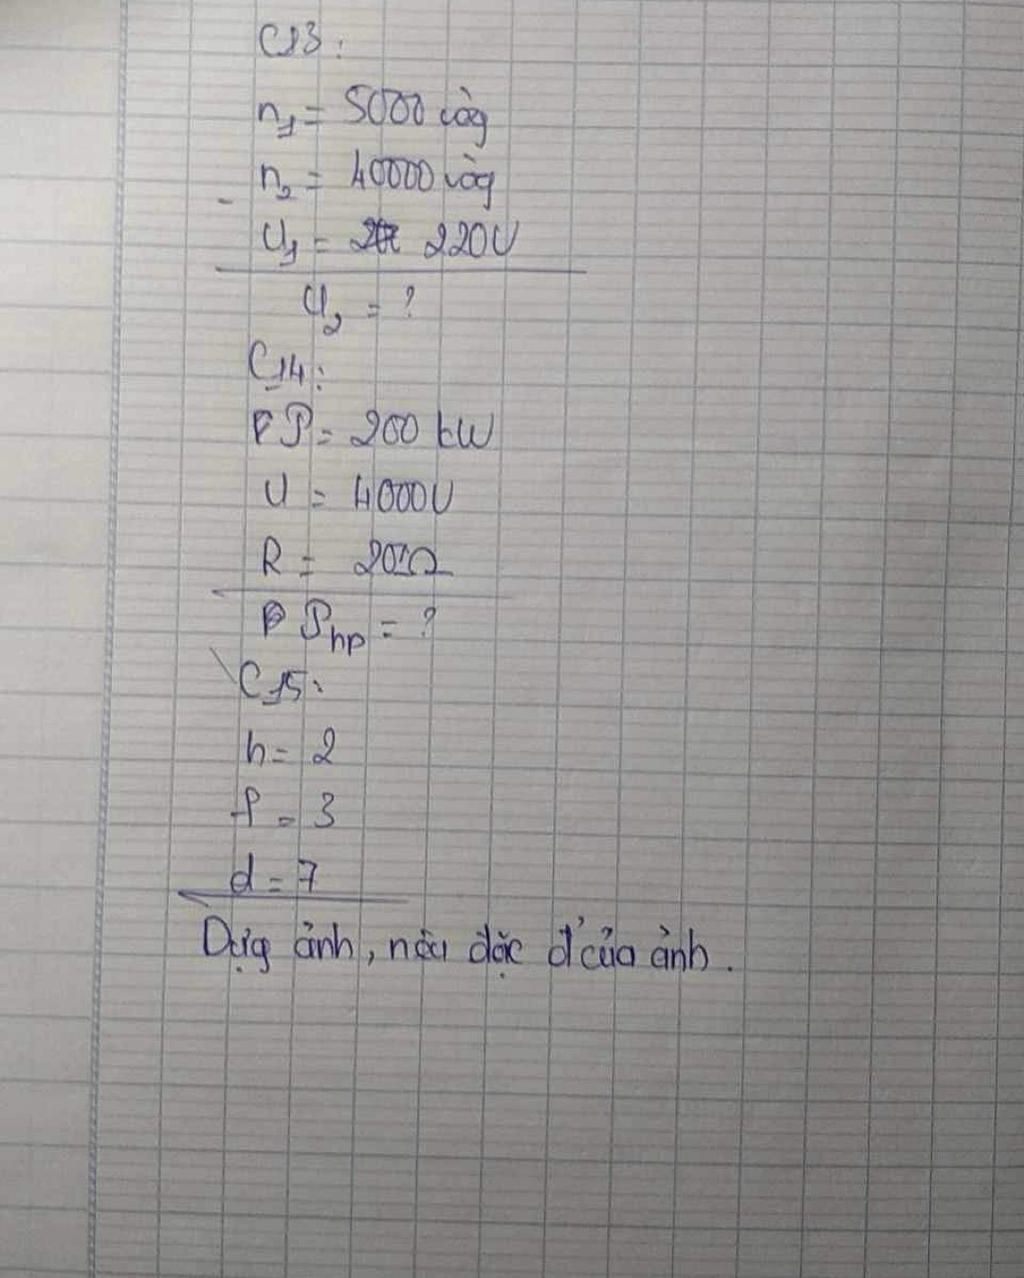 C13:
n₁ = 5000 vòg
n₂ = 40000 vòg
U₁ = 220V
U₂ = ?
C14:
P = 200 kW
U = 4000V
R = 20Ω
P hp = ?
C15:
h = 2
f = 3
d = 7
Dựg ảnh, nêu đặc đ' của ảnh.